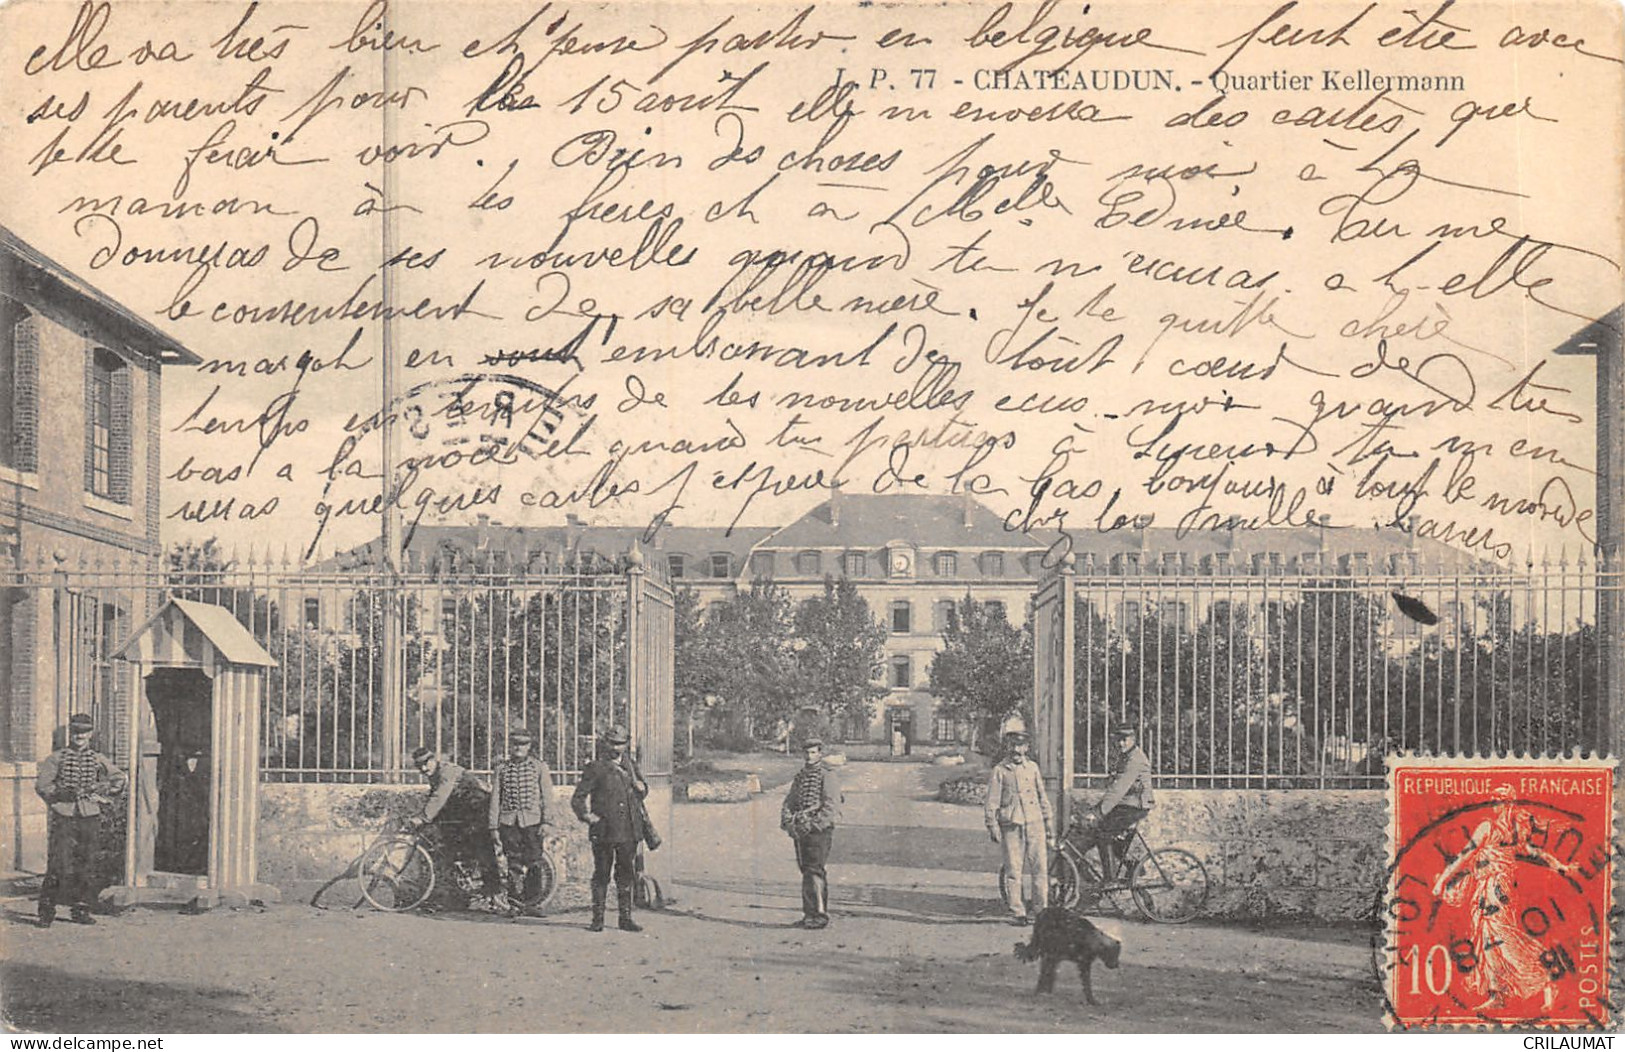 elle va très bien et pense partir en belgique peut être avec
J. P. 77 - CHATEAUDUN. - Quartier Kellermann
ses parents pour le 15 août elle m enverra des cartes que
je te ferai voir. Bien des choses pour moi à ta
maman à tes freres et à Melle Edmée. Tu me
donneras de ses nouvelles quand tu m'ecriras et elle
le consentement de sa belle mere. Je te quitte chere
margot en t'embrassant de tout coeur de
temps en temps de tes nouvelles ecris moi quand tu
vas a la noce et quand tu partiras à tu m en
verras quelques cartes j'espere de la bas, bonjour à tout le monde
mille baisers
REPUBLIQUE FRANÇAISE
10
POSTES
EURE ET LOIR
CRILAUMAT